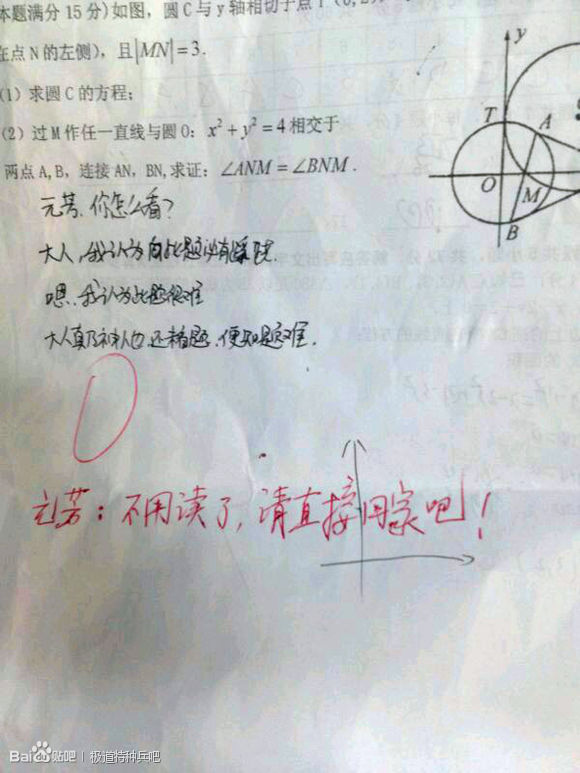 本题满分15分)如图，圆C与y轴相切于点T(0,2)
在点N的左侧)，且|MN|=3.
(1) 求圆C的方程；
(2) 过M作任一直线与圆O：x²+y²=4相交于
两点A,B，连接AN，BN,求证：∠ANM=∠BNM.
y
T
A
O
M
B
元芳，你怎么看?
大人,我认为此题必有蹊跷.
嗯,我认为此题很难
大人真乃神人也,还看题,便知题难.
0
元芳：不用读了,请直接回家吧!
Bai 贴吧 | 极道特种兵吧